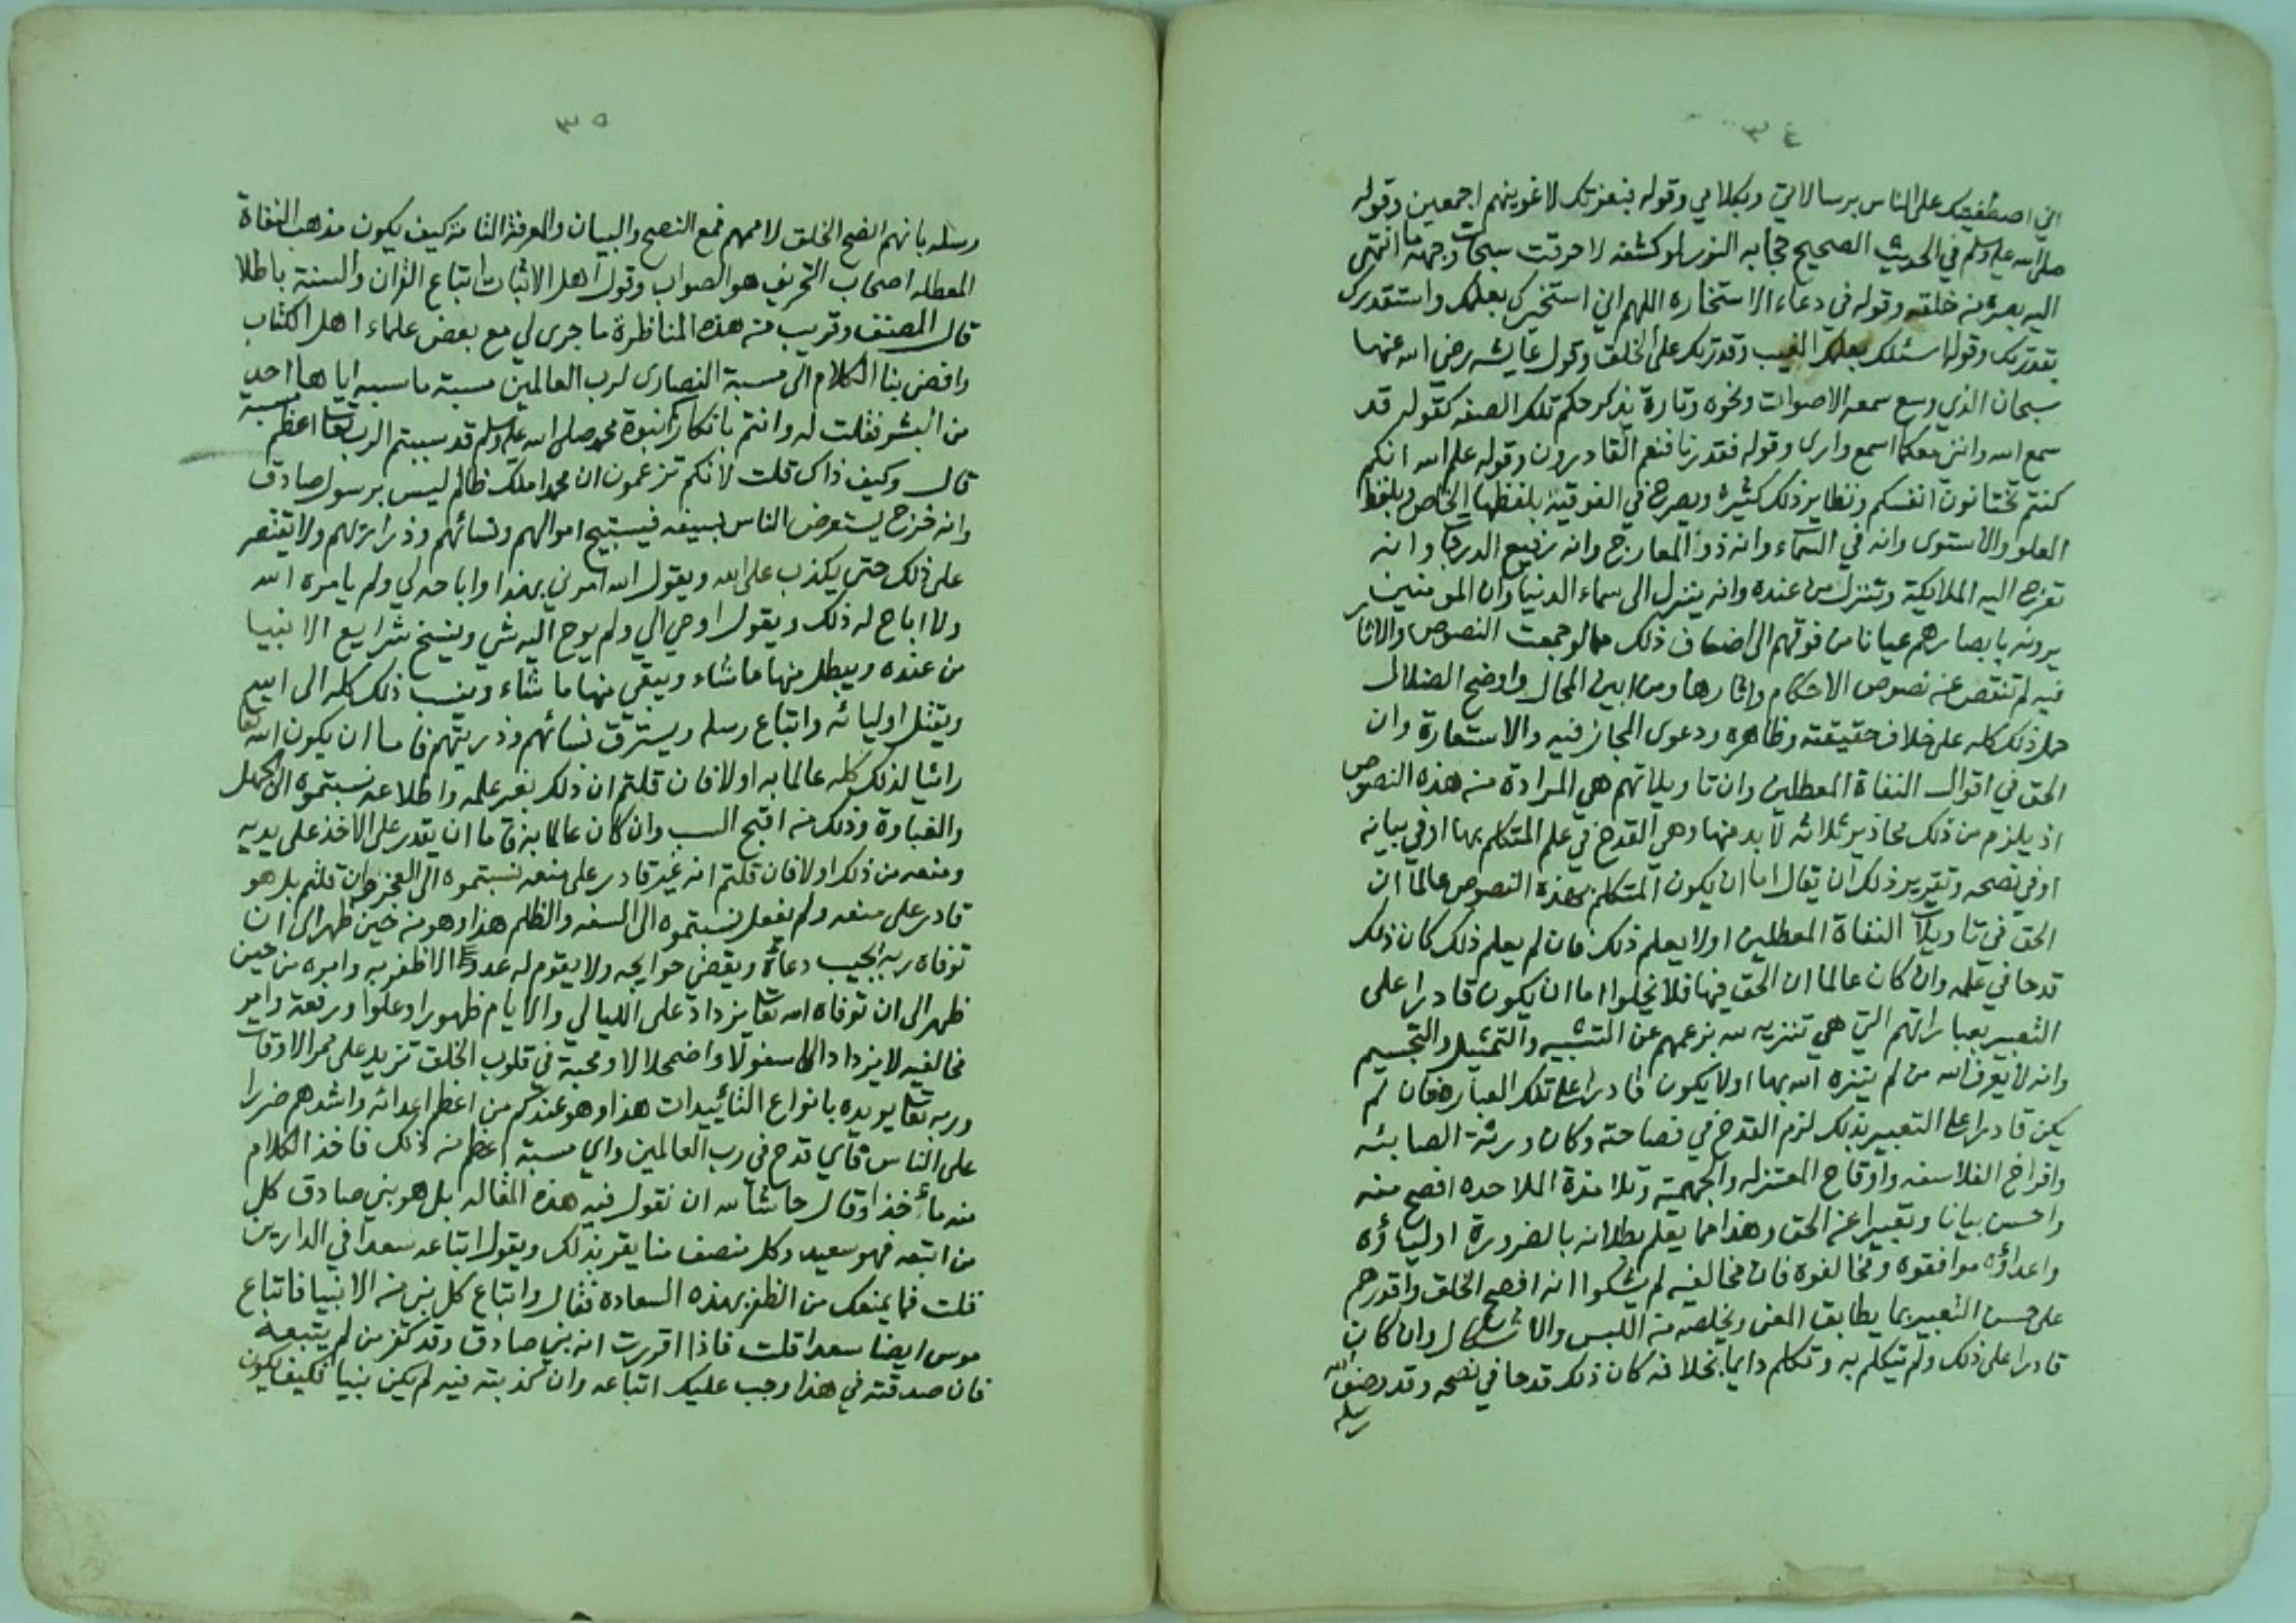 ٣٤
اني اصطفيتك على الناس برسالاتي وبكلامي وقوله فبعزتك لاغوينهم اجمعين وقوله
صلى الله عليه وسلم في الحديث الصحيح حجابه النور لو كشفه لاحرقت سبحات وجهه ما انتهى
اليه بصره من خلقه وقوله في دعاء الاستخاره اللهم اني استخيرك بعلمك واستقدرك
بقدرتك وقوله اسئلك بعلمك الغيب وقدرتك على الخلق وقول عايشه رضي الله عنها
سبحان الذي وسع سمعه الاصوات ونحوه وتارة يذكر حكم تلك الصفه كقوله قد
سمع الله وانني معكما اسمع وارى وقوله فقدرنا فنعم القادرون وقوله علم الله انكم
كنتم تختانون انفسكم ونظاير ذلك كثيرة ويصرح في الفوقيه بلفظها الخاص وبلفظ
العلو والاستوى وانه في السماء وانه ذو المعارج وانه رفيع الدرجات وانه
تعرج اليه الملايكة وتنزل من عنده وانه ينزل الى سماء الدنيا وان المومنين
يرونه بابصارهم عيانا من فوقهم الى اضعاف ذلك مما لو جمعت النصوص والاثار
فيه لم تنقص عن نصوص الاحكام واثارها ومن ابين المحال واوضح الضلال
حمل ذلك كله على خلاف حقيقته وظاهره ودعوى المجاز فيه والاستعارة وان
الحق في اقوال النفاة المعطلين وان تاويلاتهم هي المرادة من هذه النصوص
اذ يلزم من ذلك محاذير ثلاثه لا بد منها وهي القدح في علم المتكلم بها او في بيانه
او في نصحه وتقرير ذلك ان يقال اما ان يكون المتكلم بهذه النصوص عالما ان
الحق في تاويلات النفاة المعطلين اولا يعلم ذلك فان لم يعلم ذلك كان ذلك
قدحا في علمه وان كان عالما ان الحق فيها فلا يخلوا اما ان يكون قادرا على
التعبير بعباراتهم التي هي تنزيه لله بزعمهم عن التشبيه والتمثيل والتجسيم
وانه لا يعرف الله من لم ينزه الله بها اولا يكون قادرا على تلك العبارة فان لم
يكن قادرا على التعبير بذلك لزم القدح في فصاحته وكان ورثة الصابئه
وافراخ الفلاسفه واوقاح المعتزله والجهمية وتلامذة الملاحده افصح منه
واحسن بيانا وتعبيرا عن الحق وهذا مما يعلم بطلانه بالضرورة اولياؤه
واعداؤه موافقوه ومخالفوه فان مخالفيه لم يشكوا انه افصح الخلق واقدرهم
على حسن التعبير بما يطابق المعنى ويخلصه من اللبس والاشكال وان كان
قادرا على ذلك ولم يتكلم به وتكلم دايما بخلافه كان ذلك قدحا في نصحه وقد وصف الله
رسله
٣٥
رسله بانهم انصح الخلق لاممهم فمع النصح والبيان والمعرفة التامة كيف يكون مذهب النفاة
المعطله اصحاب التحريف هو الصواب وقول اهل الاثبات اتباع القران والسنة باطلا
قال المصنف وقريب من هذه المناظرة ما جرى لي مع بعض علماء اهل الكتاب
وافضى بنا الكلام الى مسبة النصارى لرب العالمين مسبة ما سبه اياها احد
من البشر فقلت له وانتم بانكاركم نبوة محمد صلى الله عليه وسلم قد سببتم الرب تعالى اعظم مسبة
قال وكيف ذاك قلت لانكم تزعمون ان محمدا ملك ظالم ليس برسول صادق
وانه خرج يستعرض الناس بسيفه فيستبيح اموالهم ونسائهم وذراريهم ولا يقتصر
على ذلك حتى يكذب على الله ويقول الله امرني بهذا واباحه لي ولم يامره الله
ولا اباح له ذلك ويقول اوحي الي ولم يوح اليه شي وينسخ شرايع الانبيا
من عنده ويبطل منها ما شاء ويبقي منها ما شاء وينسب ذلك كله الى الله
ويقتل اوليائه واتباع رسله ويسترق نسائهم وذريتهم فاما ان يكون الله تعالى
رائيا لذلك كله عالما به اولا فان قلتم ان ذلك بغير علمه واطلاعه نسبتموه الى الجهل
والغباوة وذلك من اقبح السب وان كان عالما به فاما ان يقدر على الاخذ على يديه
ومنعه من ذلك اولا فان قلتم انه غير قادر على منعه نسبتموه الى العجز وان قلتم بل هو
قادر على منعه ولم يفعل نسبتموه الى السفه والظلم هذا وهو من حين ظهر الى ان
توفاه ربه يجيب دعاءه ويقضي حوايجه ولا يقوم له عدو الا اظفره به وامره من حين
ظهر الى ان توفاه الله تعالى يزداد على الليالي والايام ظهورا وعلوا ورفعة وامر
مخالفيه لا يزداد الا سفولا واضمحلالا ومحبته في قلوب الخلق تزيد على ممر الاوقات
وربه تعالى يويده بانواع التأييدات هذا وهو عندكم من اعظم اعدائه واشدهم ضررا
على الناس فاي قدح في رب العالمين واي مسبة اعظم من ذلك فاخذ الكلام
منه مأخذا وقال حاشا لله ان نقول فيه هذه المقاله بل هو نبي صادق كل
من اتبعه فهو سعيد وكل منصف منا يقر بذلك ويقول اتباعه سعدا في الدارين
قلت فما يمنعك من الظفر بهذه السعادة فقال واتباع كل نبي من الانبيا فاتباع
موسى ايضا سعدا قلت فاذا اقررت انه نبي صادق وقد كفر من لم يتبعه
فان صدقته في هذا وجب عليك اتباعه وان كذبته فيه لم يكن نبيا فكيف يكون